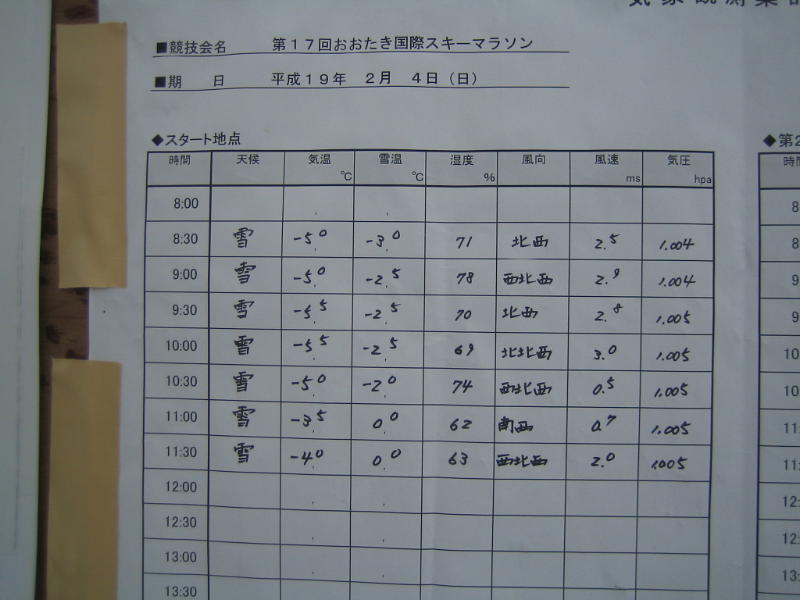 ■競技会名 第17回おおたき国際スキーマラソン
■期 日 平成19年 2月 4日（日）
◆スタート地点
時間 天候 気温 ℃ 雪温 ℃ 湿度 % 風向 風速 ms 気圧 hpa
8:00
8:30 雪 -5.0 -3.0 71 北西 2.5 1,004
9:00 雪 -5.0 -2.5 78 西北西 2.9 1,004
9:30 雪 -5.5 -2.5 70 北西 2.8 1,005
10:00 雪 -5.5 -2.5 69 北北西 3.0 1,005
10:30 雪 -5.0 -2.0 74 西北西 0.5 1,005
11:00 雪 -3.5 0.0 62 南西 0.7 1,005
11:30 雪 -4.0 0.0 63 西北西 2.0 1005
12:00
12:30
13:00
13:30
◆第2